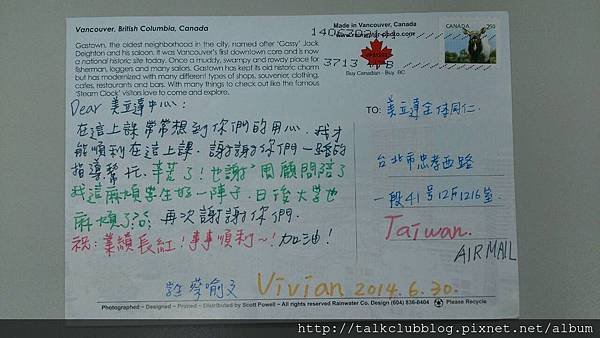 Vancouver, British Columbia, Canada
Gastown, the oldest neighborhood in the city, named after 'Gassy' Jack
Deighton and his saloon. It was Vancouver's first downtown core and is now
a national historic site today. Once a muddy, swampy and rowdy place for
fisherman, loggers and many sailors. Gastown has kept its old historic charm
but has modernized with many different types of shops, souvenier, clothing,
cafes, restaurants and bars. With many things to check out like the famous
'Steam Clock' visitors love to come and explore.
Made in Vancouver, Canada
3713
Buy Canadian - Buy BC
CANADA
250
Dear 美立達中心:
在這上課常常想到你們的用心, 我才
能順利在這上課. 謝謝你們一路的
指導幫忙. 辛苦了! 也謝謝周顧問陪了
我這麻煩學生好一陣子. 日後大學也
麻煩了. 再次謝謝你們.
祝: 業績長紅! 事事順利~! 加油!
學生 蔡喻文 Vivian 2014.6.30.
TO: 美立達全体同仁.
台北市忠孝西路
一段41号12F1216室.
Taiwan.
AIR MAIL
Photographed ~ Designed ~ Printed ~ Distributed by Scott Powell ~ All rights reserved Rainwater Co. Design (604) 836-6404 Please Recycle
http://talkclubblog.pixnet.net/album